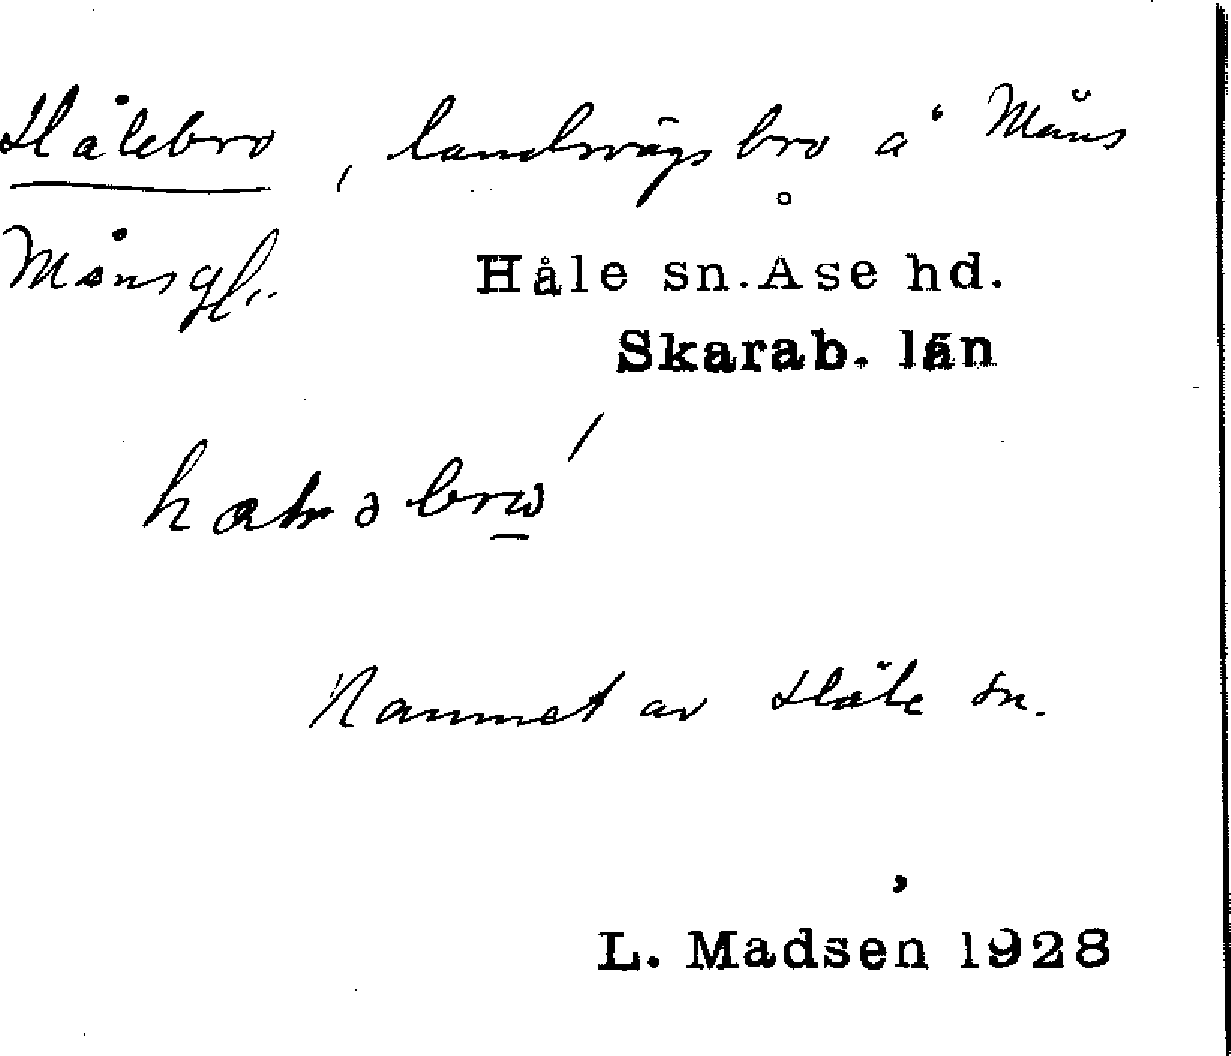 Hålebro, landsvägsbro å Måns
Månsg
Håle sn. Åse hd.
Skarab. län
Namnet av Håle sn.
L. Madsen 1928